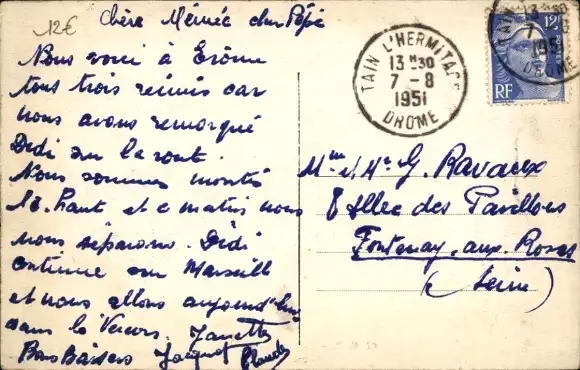 12€
Chère Mémée cher Pépé
Nous voici à
tous trois réunis car
nous avons remorqué
Didi sur la route.
Nous sommes montés
là haut et ce matin nous
nous séparons. Didi
continue sur Marseille
et nous allons aujourd'hui
dans le Vercors.
Bons Baisers Jacquot Claude
TAIN L'HERMITAGE
13H30
7-8
1951
DROME
12F
RF
Mme et Mr G. Ravaux
8 Allée des Pavillons
Fontenay-aux-Roses
(Seine)